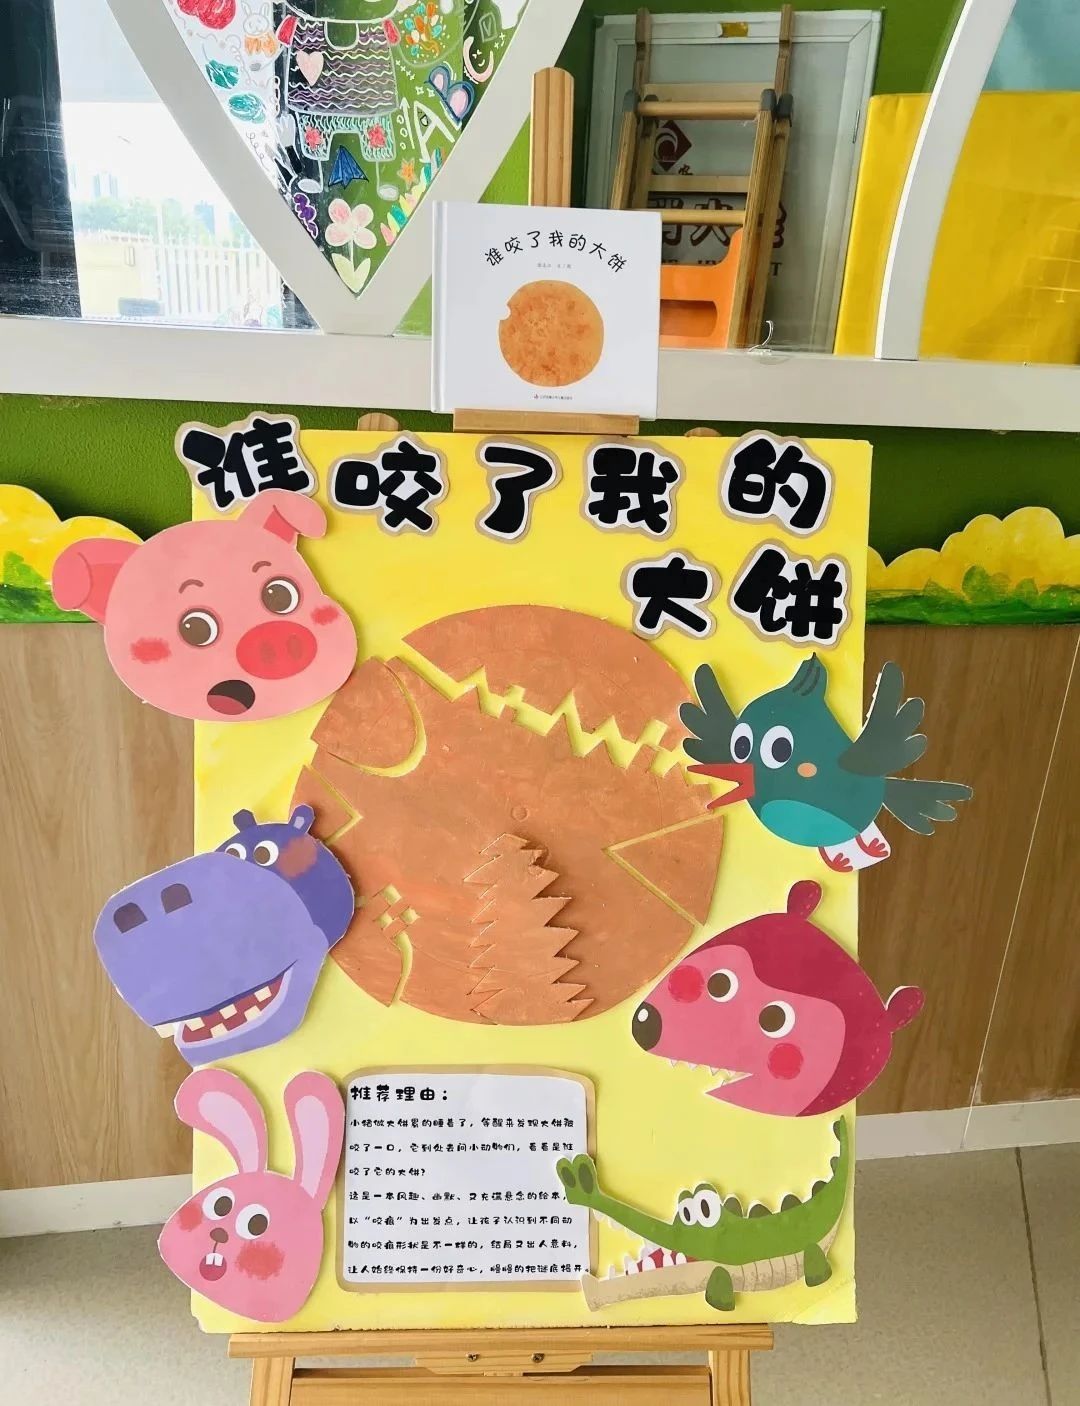 谁咬了我的大饼
谁咬了我的
大饼
推荐理由：
小猪做大饼累的睡着了，等醒来发现大饼被
咬了一口，它到处去问小动物们，看看是谁
咬了它的大饼？
这是一本风趣、幽默、又充满悬念的绘本，
以“咬痕”为出发点，让孩子认识到不同动
物的咬痕形状是不一样的，结局又出人意料，
让人始终保持一份好奇心，慢慢的把谜底揭开。